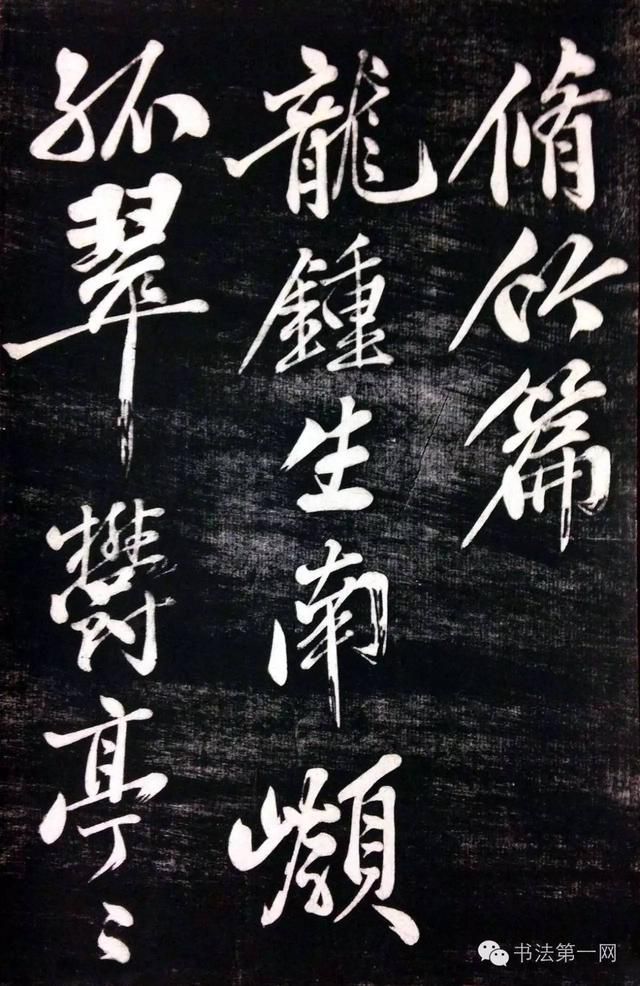 脩竹篇
龍鍾生南
孤翠欝亭〻
书法第一网